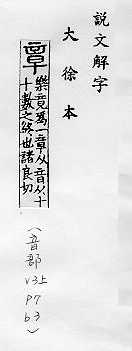 說文解字
大徐本
章
樂竟爲一章从音从十
十數之終也諸良切
(音部
V3上
P7
b3)